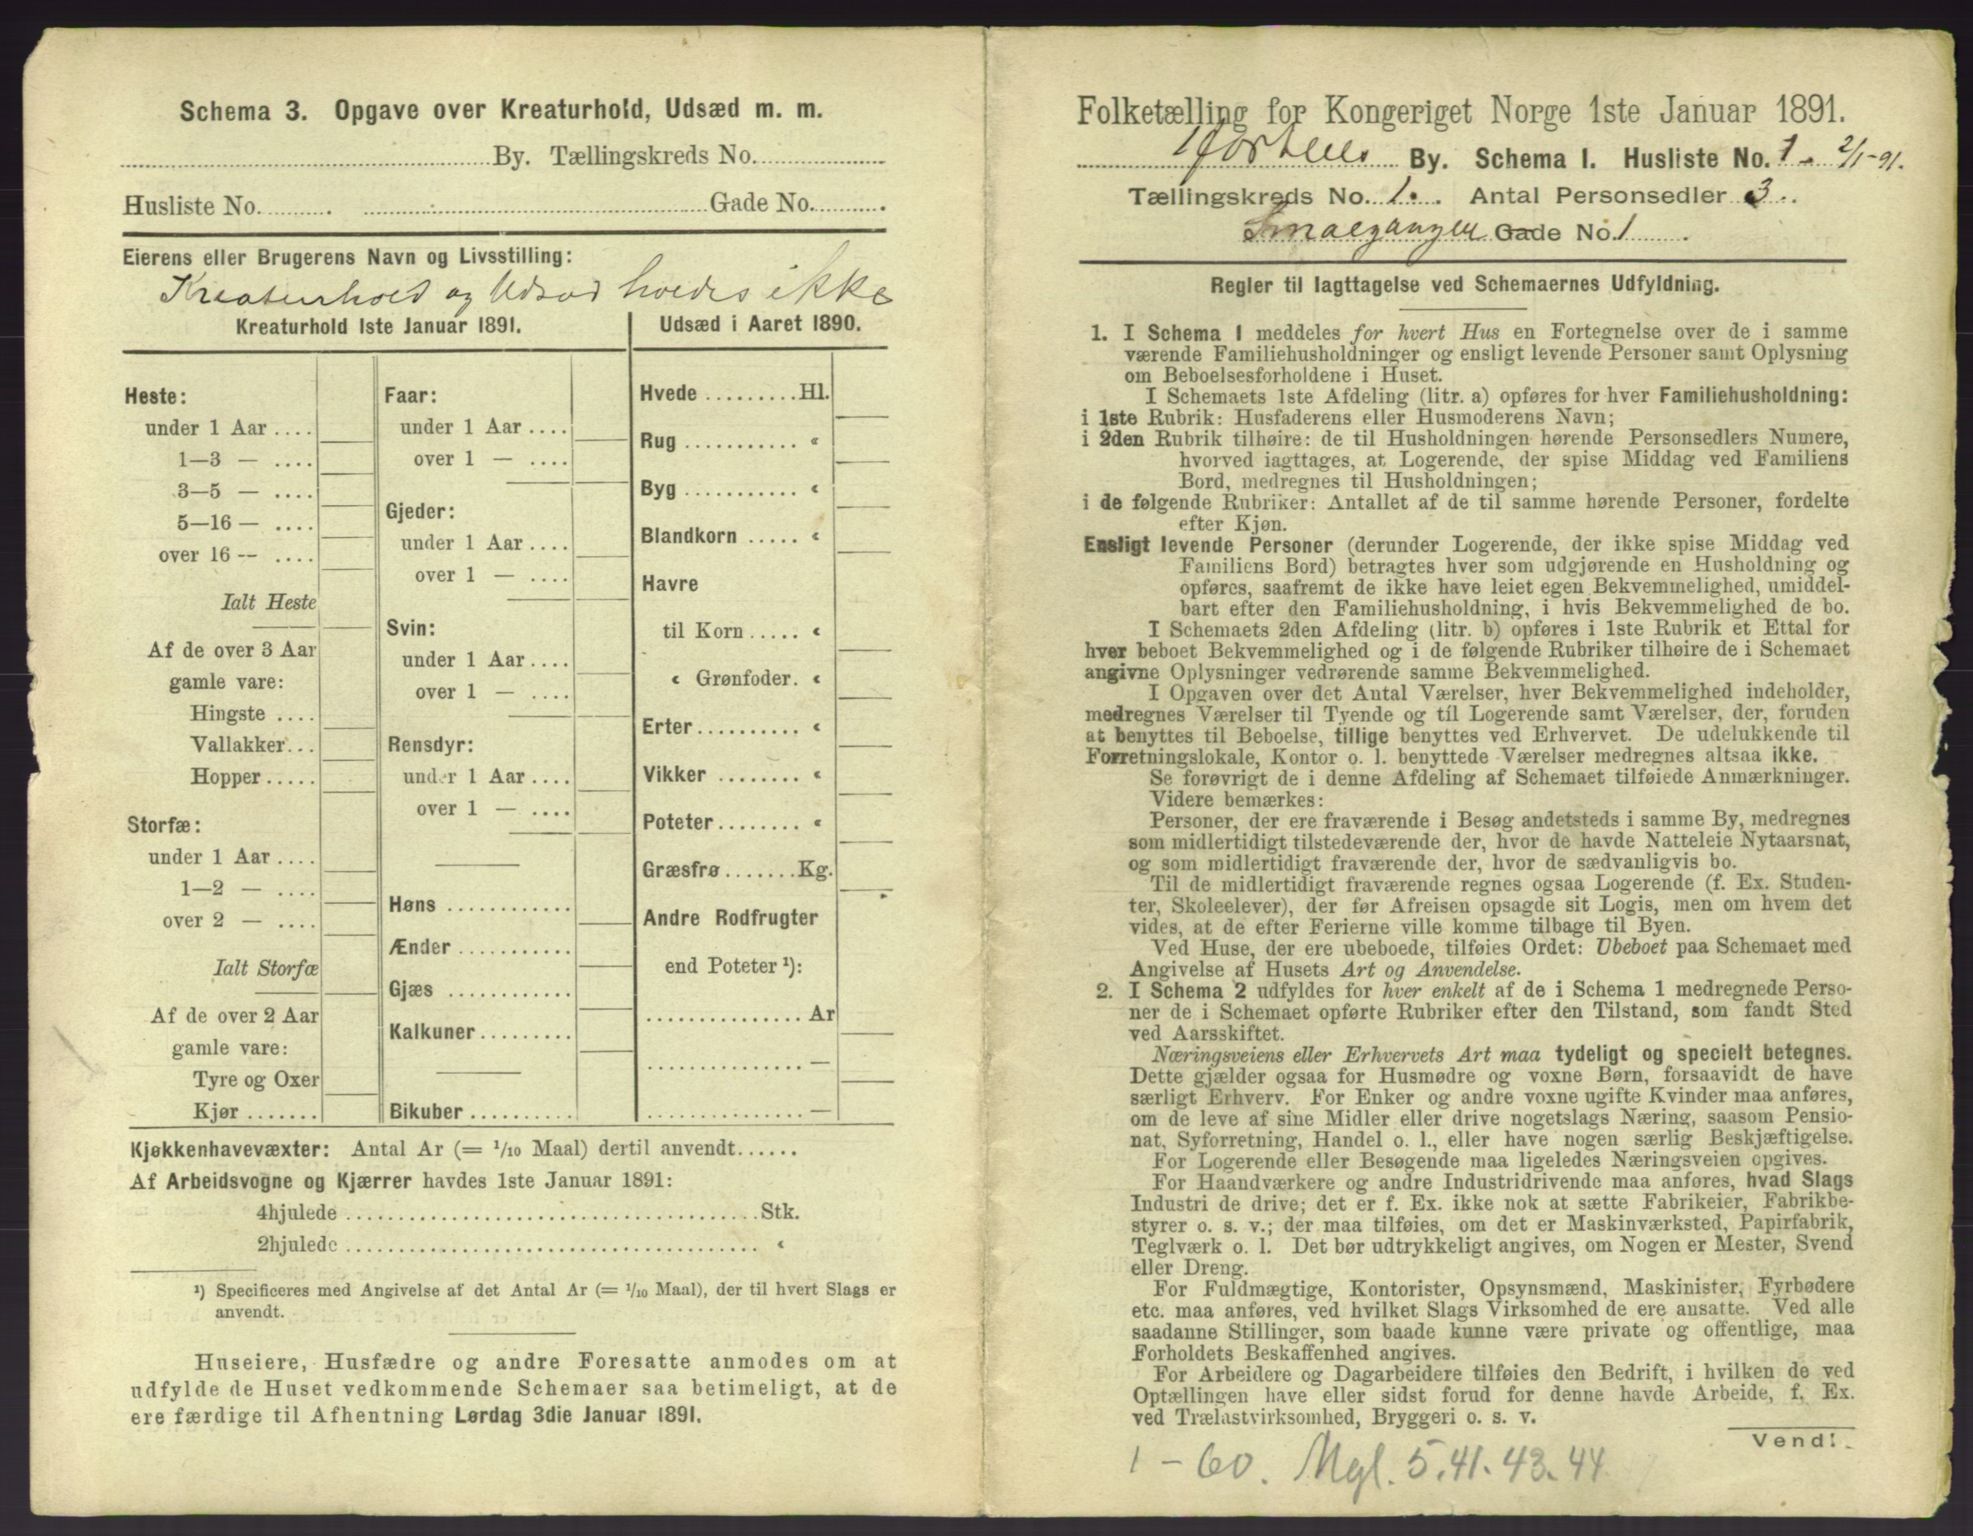 Schema 3. Opgave over Kreaturhold, Udsæd m. m.
By. Tællingskreds No.
Husliste No. Gade No.
Eierens eller Brugerens Navn og Livsstilling:
Kreaturhold og Udsæd havdes ikke
Kreaturhold 1ste Januar 1891.
Heste:
under 1 Aar ....
1—3 — ....
3—5 — ....
5—16 — ....
over 16 -- ....
Ialt Heste
Af de over 3 Aar
gamle vare:
Hingste ....
Vallakker...
Hopper.....
Storfæ:
under 1 Aar ....
1—2 — ....
over 2 — ....
Ialt Storfæ
Af de over 2 Aar
gamle vare:
Tyre og Oxer
Kjør .......
Faar:
under 1 Aar ....
over 1 — ....
Gjeder:
under 1 Aar ....
over 1 — ....
Svin:
under 1 Aar ....
over 1 — ....
Rensdyr:
under 1 Aar ....
over 1 — ....
Høns ............
Ænder ...........
Gjæs ............
Kalkuner.........
Bikuber ..........
Udsæd i Aaret 1890.
Hvede .........Hl.
Rug ........... «
Byg ........... «
Blandkorn ..... «
Havre
til Korn ..... «
« Grønfoder. «
Erter.......... «
Vikker ........ «
Poteter........ «
Græsfrø .......Kg.
Andre Rodfrugter
end Poteter ¹):
............... Ar
............... —
............... —
Kjøkkenhavevæxter: Antal Ar (= 1/10 Maal) dertil anvendt......
Af Arbeidsvogne og Kjærrer havdes 1ste Januar 1891:
4hjulede ........................................Stk.
2hjulede ........................................ «
¹) Specificeres med Angivelse af det Antal Ar (= 1/10 Maal), der til hvert Slags er
anvendt.
Huseiere, Husfædre og andre Foresatte anmodes om at
udfylde de Huset vedkommende Schemaer saa betimeligt, at de
ere færdige til Afhentning Lørdag 3die Januar 1891.
Folketælling for Kongeriget Norge 1ste Januar 1891.
Hortens By. Schema I. Husliste No. 1. 2/1-91.
Tællingskreds No. 1. Antal Personsedler 3.
Smalgangen Gade No. 1
Regler til Iagttagelse ved Schemaernes Udfyldning.
1. I Schema 1 meddeles for hvert Hus en Fortegnelse over de i samme
værende Familiehusholdninger og ensligt levende Personer samt Oplysning
om Beboelsesforholdene i Huset.
I Schemaets 1ste Afdeling (litr. a) opføres for hver Familiehusholdning:
i 1ste Rubrik: Husfaderens eller Husmoderens Navn;
i 2den Rubrik tilhøire: de til Husholdningen hørende Personsedlers Numere,
hvorved iagttages, at Logerende, der spise Middag ved Familiens
Bord, medregnes til Husholdningen;
i de følgende Rubriker: Antallet af de til samme hørende Personer, fordelte
efter Kjøn.
Ensligt levende Personer (derunder Logerende, der ikke spise Middag ved
Familiens Bord) betragtes hver som udgjørende en Husholdning og
opføres, saafremt de ikke have leiet egen Bekvemmelighed, umiddel-
bart efter den Familiehusholdning, i hvis Bekvemmelighed de bo.
I Schemaets 2den Afdeling (litr. b) opføres i 1ste Rubrik et Ettal for
hver beboet Bekvemmelighed og i de følgende Rubriker tilhøire de i Schemaet
angivne Oplysninger vedrørende samme Bekvemmelighed.
I Opgaven over det Antal Værelser, hver Bekvemmelighed indeholder,
medregnes Værelser til Tyende og til Logerende samt Værelser, der, foruden
at benyttes til Beboelse, tillige benyttes ved Erhvervet. De udelukkende til
Forretningslokale, Kontor o. l. benyttede Værelser medregnes altsaa ikke.
Se forøvrigt de i denne Afdeling af Schemaet tilføiede Anmærkninger.
Videre bemærkes:
Personer, der ere fraværende i Besøg andetsteds i samme By, medregnes
som midlertidigt tilstedeværende der, hvor de havde Natteleie Nytaarsnat,
og som midlertidigt fraværende der, hvor de sædvanligvis bo.
Til de midlertidigt fraværende regnes ogsaa Logerende (f. Ex. Studen-
ter, Skoleelever), der før Afreisen opsagde sit Logis, men om hvem det
vides, at de efter Ferierne ville komme tilbage til Byen.
Ved Huse, der ere ubeboede, tilføies Ordet: Ubeboet paa Schemaet med
Angivelse af Husets Art og Anvendelse.
2. I Schema 2 udfyldes for hver enkelt af de i Schema 1 medregnede Perso-
ner de i Schemaet opførte Rubriker efter den Tilstand, som fandt Sted
ved Aarsskiftet.
Næringsveiens eller Erhvervets Art maa tydeligt og specielt betegnes.
Dette gjælder ogsaa for Husmødre og voxne Børn, forsaavidt de have
særligt Erhverv. For Enker og andre voxne ugifte Kvinder maa anføres,
om de leve af sine Midler eller drive nogetslags Næring, saasom Pensio-
nat, Syforretning, Handel o. l., eller have nogen særlig Beskjæftigelse.
For Logerende eller Besøgende maa ligeledes Næringsveien opgives.
For Haandværkere og andre Industridrivende maa anføres, hvad Slags
Industri de drive; det er f. Ex. ikke nok at sætte Fabrikeier, Fabrikbe-
styrer o. s. v.; der maa tilføies, om det er Maskinværksted, Papirfabrik,
Teglværk o. l. Det bør udtrykkeligt angives, om Nogen er Mester, Svend
eller Dreng.
For Fuldmægtige, Kontorister, Opsynsmænd, Maskinister, Fyrbødere
etc. maa anføres, ved hvilket Slags Virksomhed de ere ansatte. Ved alle
saadanne Stillinger, som baade kunne være private og offentlige, maa
Forholdets Beskaffenhed angives.
For Arbeidere og Dagarbeidere tilføies den Bedrift, i hvilken de ved
Optællingen have eller sidst forud for denne havde Arbeide, f. Ex.
ved Trælastvirksomhed, Bryggeri o. s. v.
Vend!
1 - 60. Mgl. 5.41.43.44